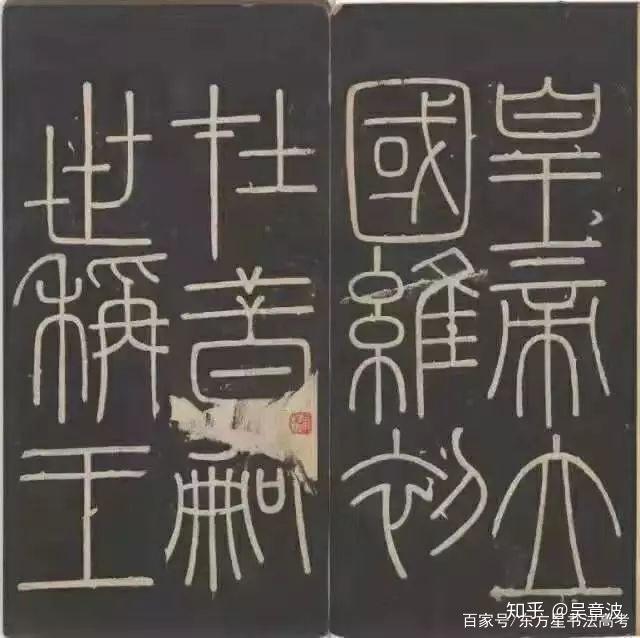 皇帝立
國維初
在昔嗣
世稱王
知乎 @吴章波
百家号/东方星书法高考